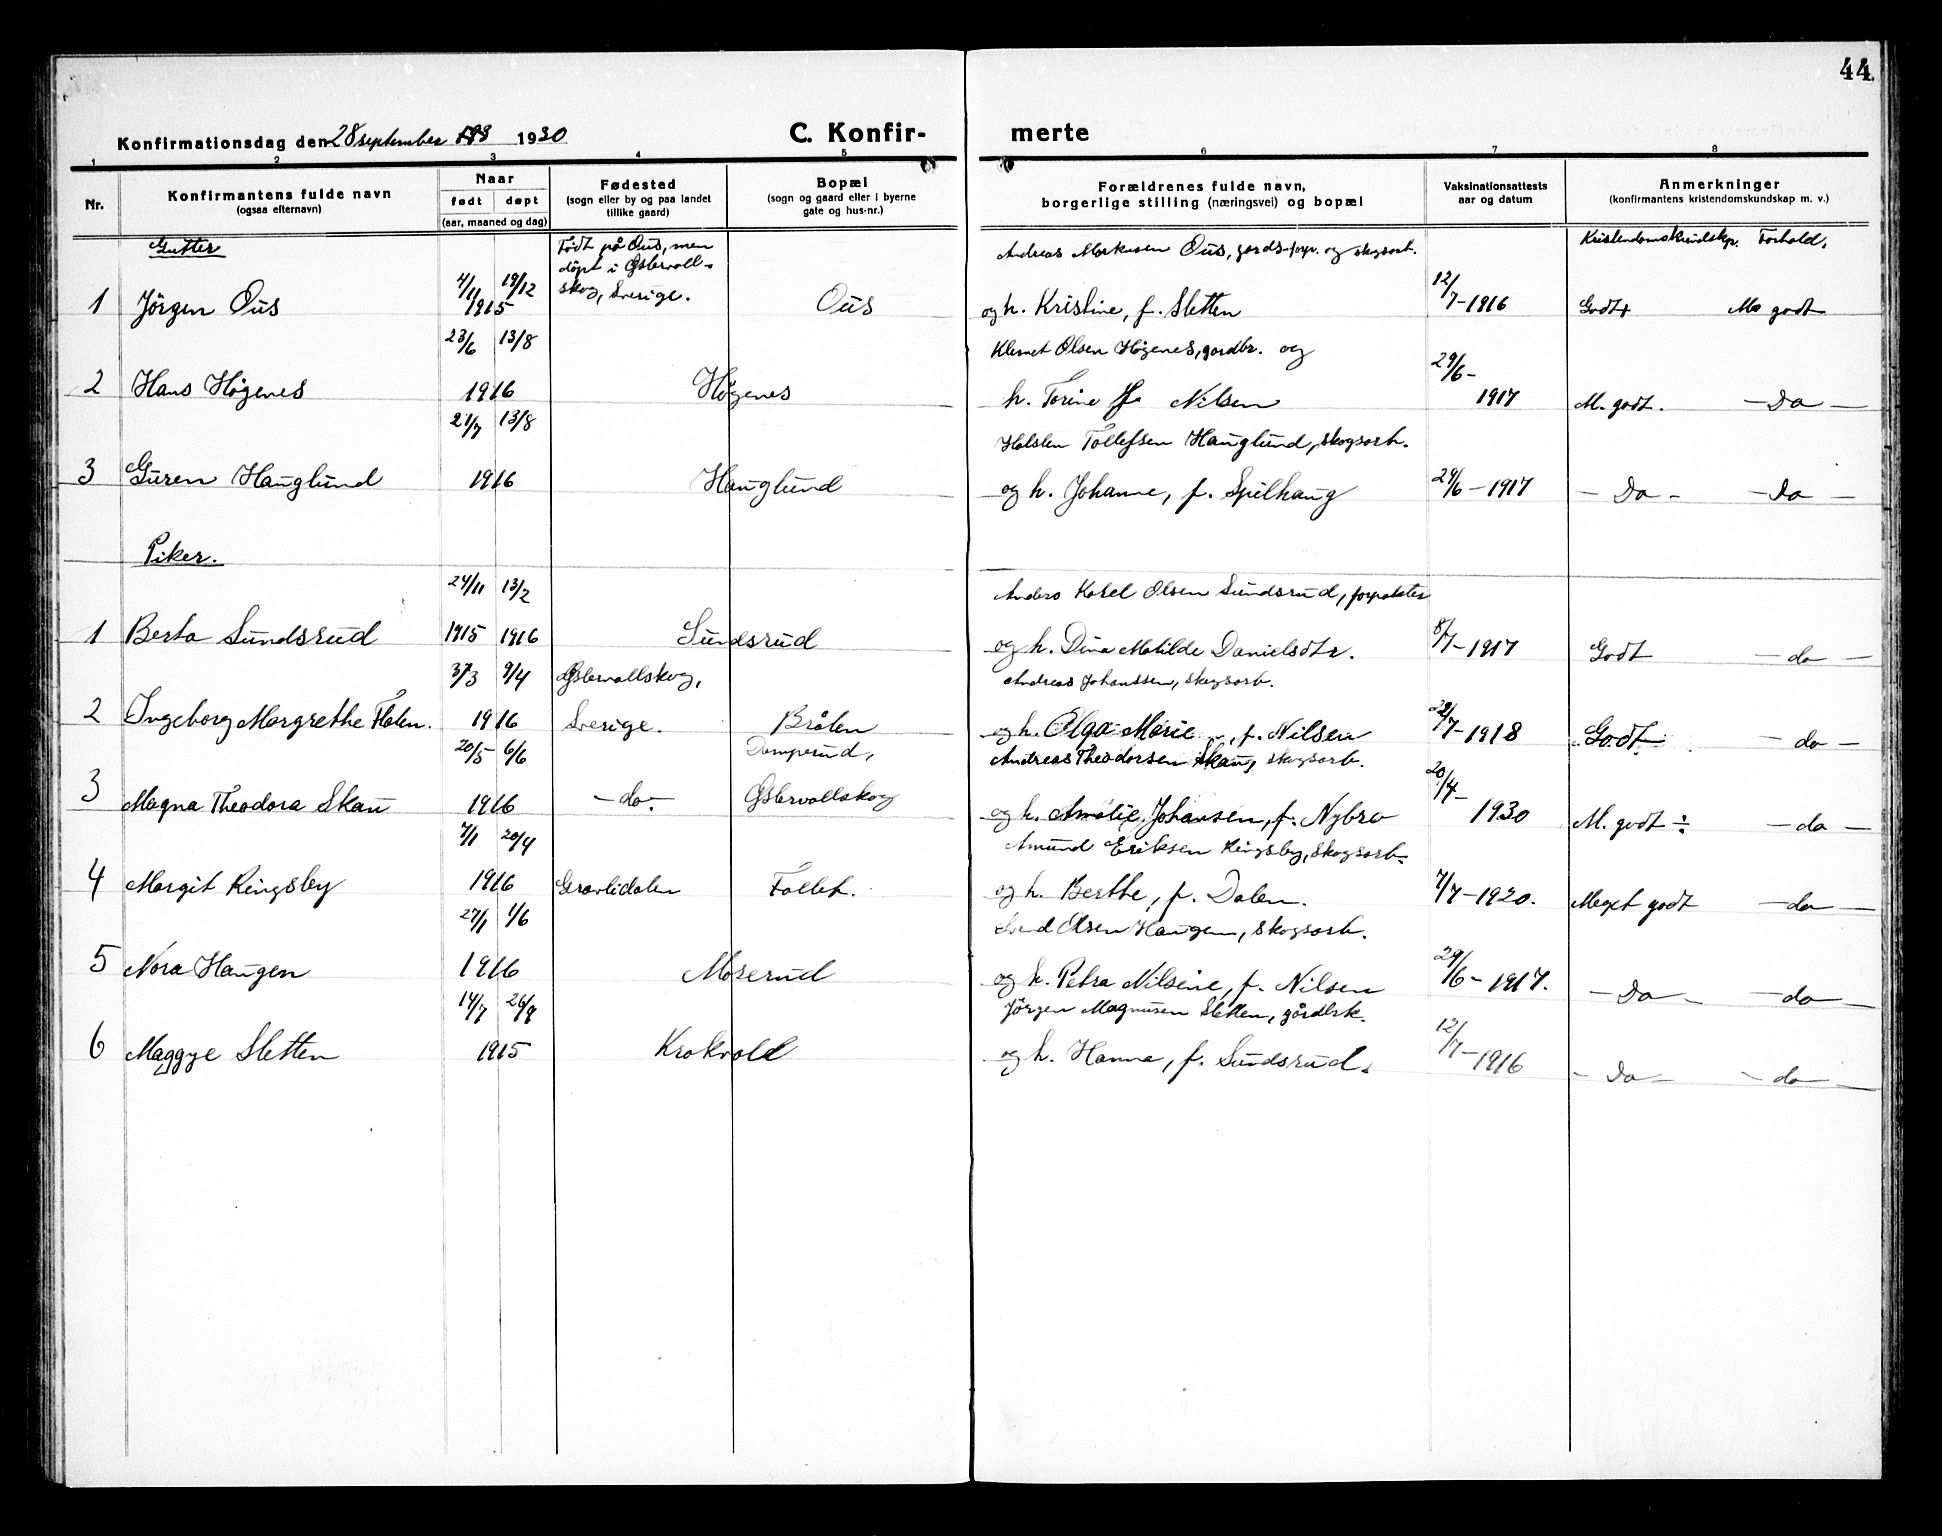 44
Konfirmationsdag den 28 september 1930
C. Konfirmerte
1 2 3 4 5 6 7 8
Nr.
Konfirmantens fulde navn
(ogsaa efternavn)
Naar
født døpt
(aar, maaned og dag)
Fødested
(sogn eller by og paa landet
tillike gaard)
Bopæl
(sogn og gaard eller i byerne
gate og hus-nr.)
Forældrenes fulde navn,
borgerlige stilling (næringsvei) og bopæl
Vaksinationsattests
aar og datum
Anmerkninger
(konfirmantens kristendomskundskap m. v.)
Gutter
Kristendomskundskp. Forhold.
Født på Ous, men
døpt i Østervall-
skog, Sverige.
Andreas Markusen Ous, gårds-forp. og skogsarb.
1 Jörgen Ous 4/11 19/12 1915 Ous og h. Kristine, f. Sletten 12/7-1916 Godt+ M. godt
23/6 13/8 Klemet Olsen Høgenes, gardbr. og 29/6-
2 Hans Høgenes 1916 Høgenes h. Torine f. Nilsen 1917 M. godt. - Do -
21/7 13/8 Halsten Tollefsen Hauglund, skogsarb.
3 Guren Hauglund 1916 Hauglund og h. Johanne, f. Spilhaug 29/6-1917 - Do - - Do -
Piker.
24/11 13/2 Anders Karel Olsen Sundsrud, forpakter
1 Berta Sundsrud 1915 1916 Sundsrud og h. Dina Matilde Danielsdtr. 8/7-1917 Godt - do -
31/3 9/4 Østervallskog, Andreas Johanssen, skogsarb.
2 Ingeborg Margrethe Flaten. 1916 Sverige. Bråten og h. Olga Marie, f. Nilsen 22/7-1918 Godt - do -
20/5 6/6 Damperud, Andreas Theodorsen Skau, skogsarb. 20/4-
3 Magna Theodora Skau 1916 - do - Østervallskog og h. Amalie Johansen, f. Nybro 1930 M. godt ÷ - do -
7/1 20/4 Amund Eriksen Ringsby, skogsarb.
4 Margit Ringsby 1916 Gravlidalen Tollef. og h. Berthe, f. Dalen. 7/7-1920. Meget godt - do -
27/1 1/6 Svend Olsen Haugen, skogsarb.
5 Nora Haugen 1916 Moserud og h. Petra Nilsine, f. Nilsen 29/6-1917. - Do - - do -
14/7 26/9 Jörgen Magnusen Sletten, gårdbrk.
6 Maggye Sletten 1915 Krokvold og h. Hanna, f. Sundsrud. 12/7-1916 - Do - - do -